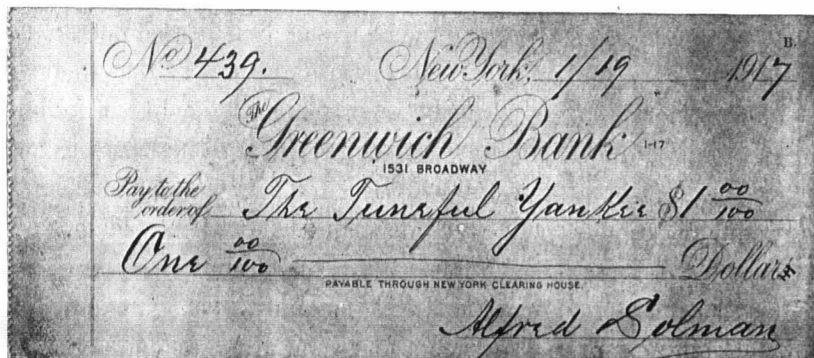 B.
No 439. New York, 1/19 1917
The Greenwich Bank 1-17
1531 BROADWAY
Pay to the order of The Tuneful Yankee $1 00/100
One 00/100 Dollars
PAYABLE THROUGH NEW YORK CLEARING HOUSE.
Alfred Solman